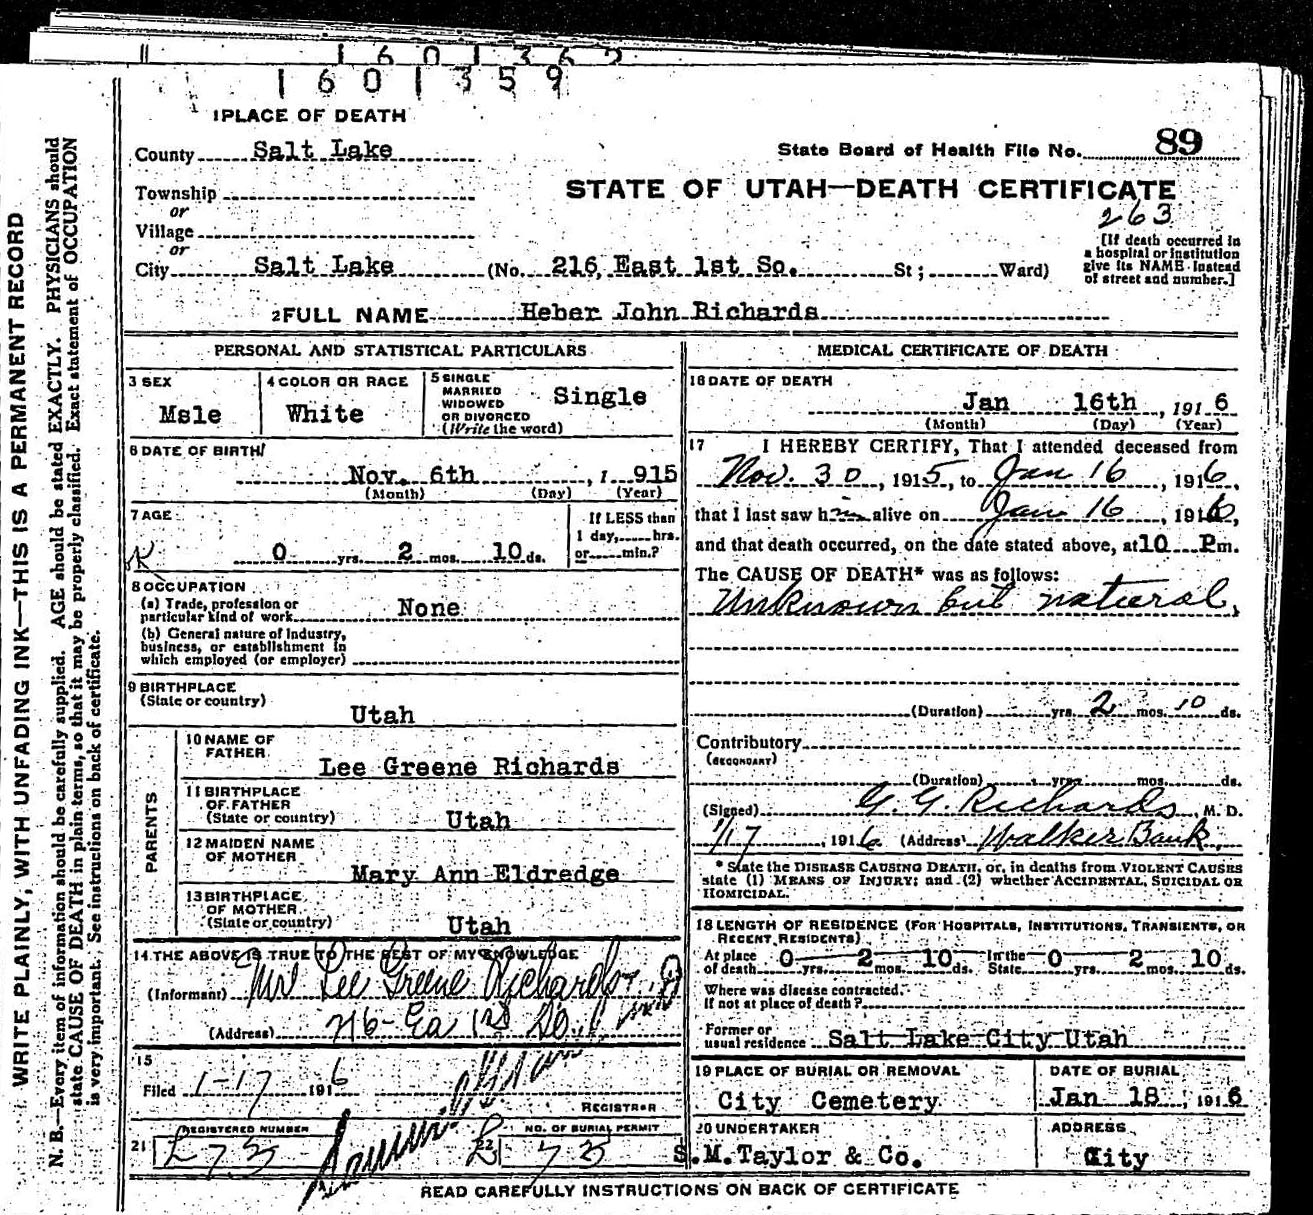 1601362
1601359
1 PLACE OF DEATH
County Salt Lake
State Board of Health File No. 89
Township
or
STATE OF UTAH—DEATH CERTIFICATE
263
Village
or
City Salt Lake (No. 216, East 1st So. St; Ward)
[If death occurred in
a hospital or institution
give its NAME instead
of street and number.]
2 FULL NAME Heber John Richards
PERSONAL AND STATISTICAL PARTICULARS
3 SEX
Msle
4 COLOR OR RACE
White
5 SINGLE
MARRIED
WIDOWED
OR DIVORCED
(Write the word)
Single
6 DATE OF BIRTH
Nov. 6th, 1 915
(Month) (Day) (Year)
7 AGE
0 yrs. 2 mos. 10 ds.
If LESS than
1 day, hrs.
or min.?
8 OCCUPATION
(a) Trade, profession or
particular kind of work None
(b) General nature of industry,
business, or establishment in
which employed (or employer)
9 BIRTHPLACE
(State or country)
Utah
PARENTS
10 NAME OF
FATHER
Lee Greene Richards
11 BIRTHPLACE
OF FATHER
(State or country)
Utah
12 MAIDEN NAME
OF MOTHER
Mary Ann Eldredge
13 BIRTHPLACE
OF MOTHER
(State or country)
Utah
14 THE ABOVE IS TRUE TO THE BEST OF MY KNOWLEDGE
(Informant) Mr Lee Greene Richards
(Address) 216 - Ea 1st So.
15
Filed 1-17 1916
REGISTRAR
21 REGISTERED NUMBER
L 73
22 NO. OF BURIAL PERMIT
L 73
MEDICAL CERTIFICATE OF DEATH
16 DATE OF DEATH
Jan 16th, 191 6
(Month) (Day) (Year)
17 I HEREBY CERTIFY, That I attended deceased from
Nov. 30, 1915, to Jan 16, 1916,
that I last saw him alive on Jan 16, 1916,
and that death occurred, on the date stated above, at 10 P m.
The CAUSE OF DEATH* was as follows:
Unknown but natural,
(Duration) yrs. 2 mos. 10 ds.
Contributory
(SECONDARY)
(Duration) yrs. mos. ds.
(Signed) G. G. Richards, M. D.
1/17, 1916 (Address) Walker Bank
* State the DISEASE CAUSING DEATH, or, in deaths from VIOLENT CAUSES
state (1) MEANS OF INJURY; and (2) whether ACCIDENTAL, SUICIDAL OR
HOMICIDAL.
18 LENGTH OF RESIDENCE (FOR HOSPITALS, INSTITUTIONS, TRANSIENTS, OR
RECENT RESIDENTS)
At place
of death 0 yrs. 2 mos. 10 ds. In the
State 0 yrs. 2 mos. 10 ds.
Where was disease contracted.
If not at place of death?
Former or
usual residence Salt Lake City Utah
19 PLACE OF BURIAL OR REMOVAL
City Cemetery
DATE OF BURIAL
Jan 18, 191 6
20 UNDERTAKER
S.M.Taylor & Co.
ADDRESS
City
READ CAREFULLY INSTRUCTIONS ON BACK OF CERTIFICATE
WRITE PLAINLY, WITH UNFADING INK—THIS IS A PERMANENT RECORD
N. B.—Every item of information should be carefully supplied. AGE should be stated EXACTLY. PHYSICIANS should
state CAUSE OF DEATH in plain terms, so that it may be properly classified. Exact statement of OCCUPATION
is very important. See instructions on back of certificate.